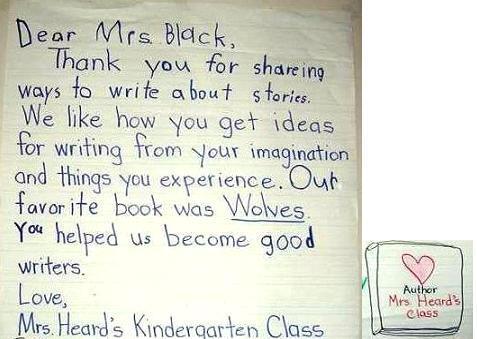 Dear Mrs. Black,
Thank you for shareing
ways to write about stories.
We like how you get ideas
for writing from your imagination
and things you experience. Our
favorite book was Wolves.
You helped us become good
writers.
Love,
Mrs. Heard's Kindergarten Class
Author
Mrs Heard's
Class